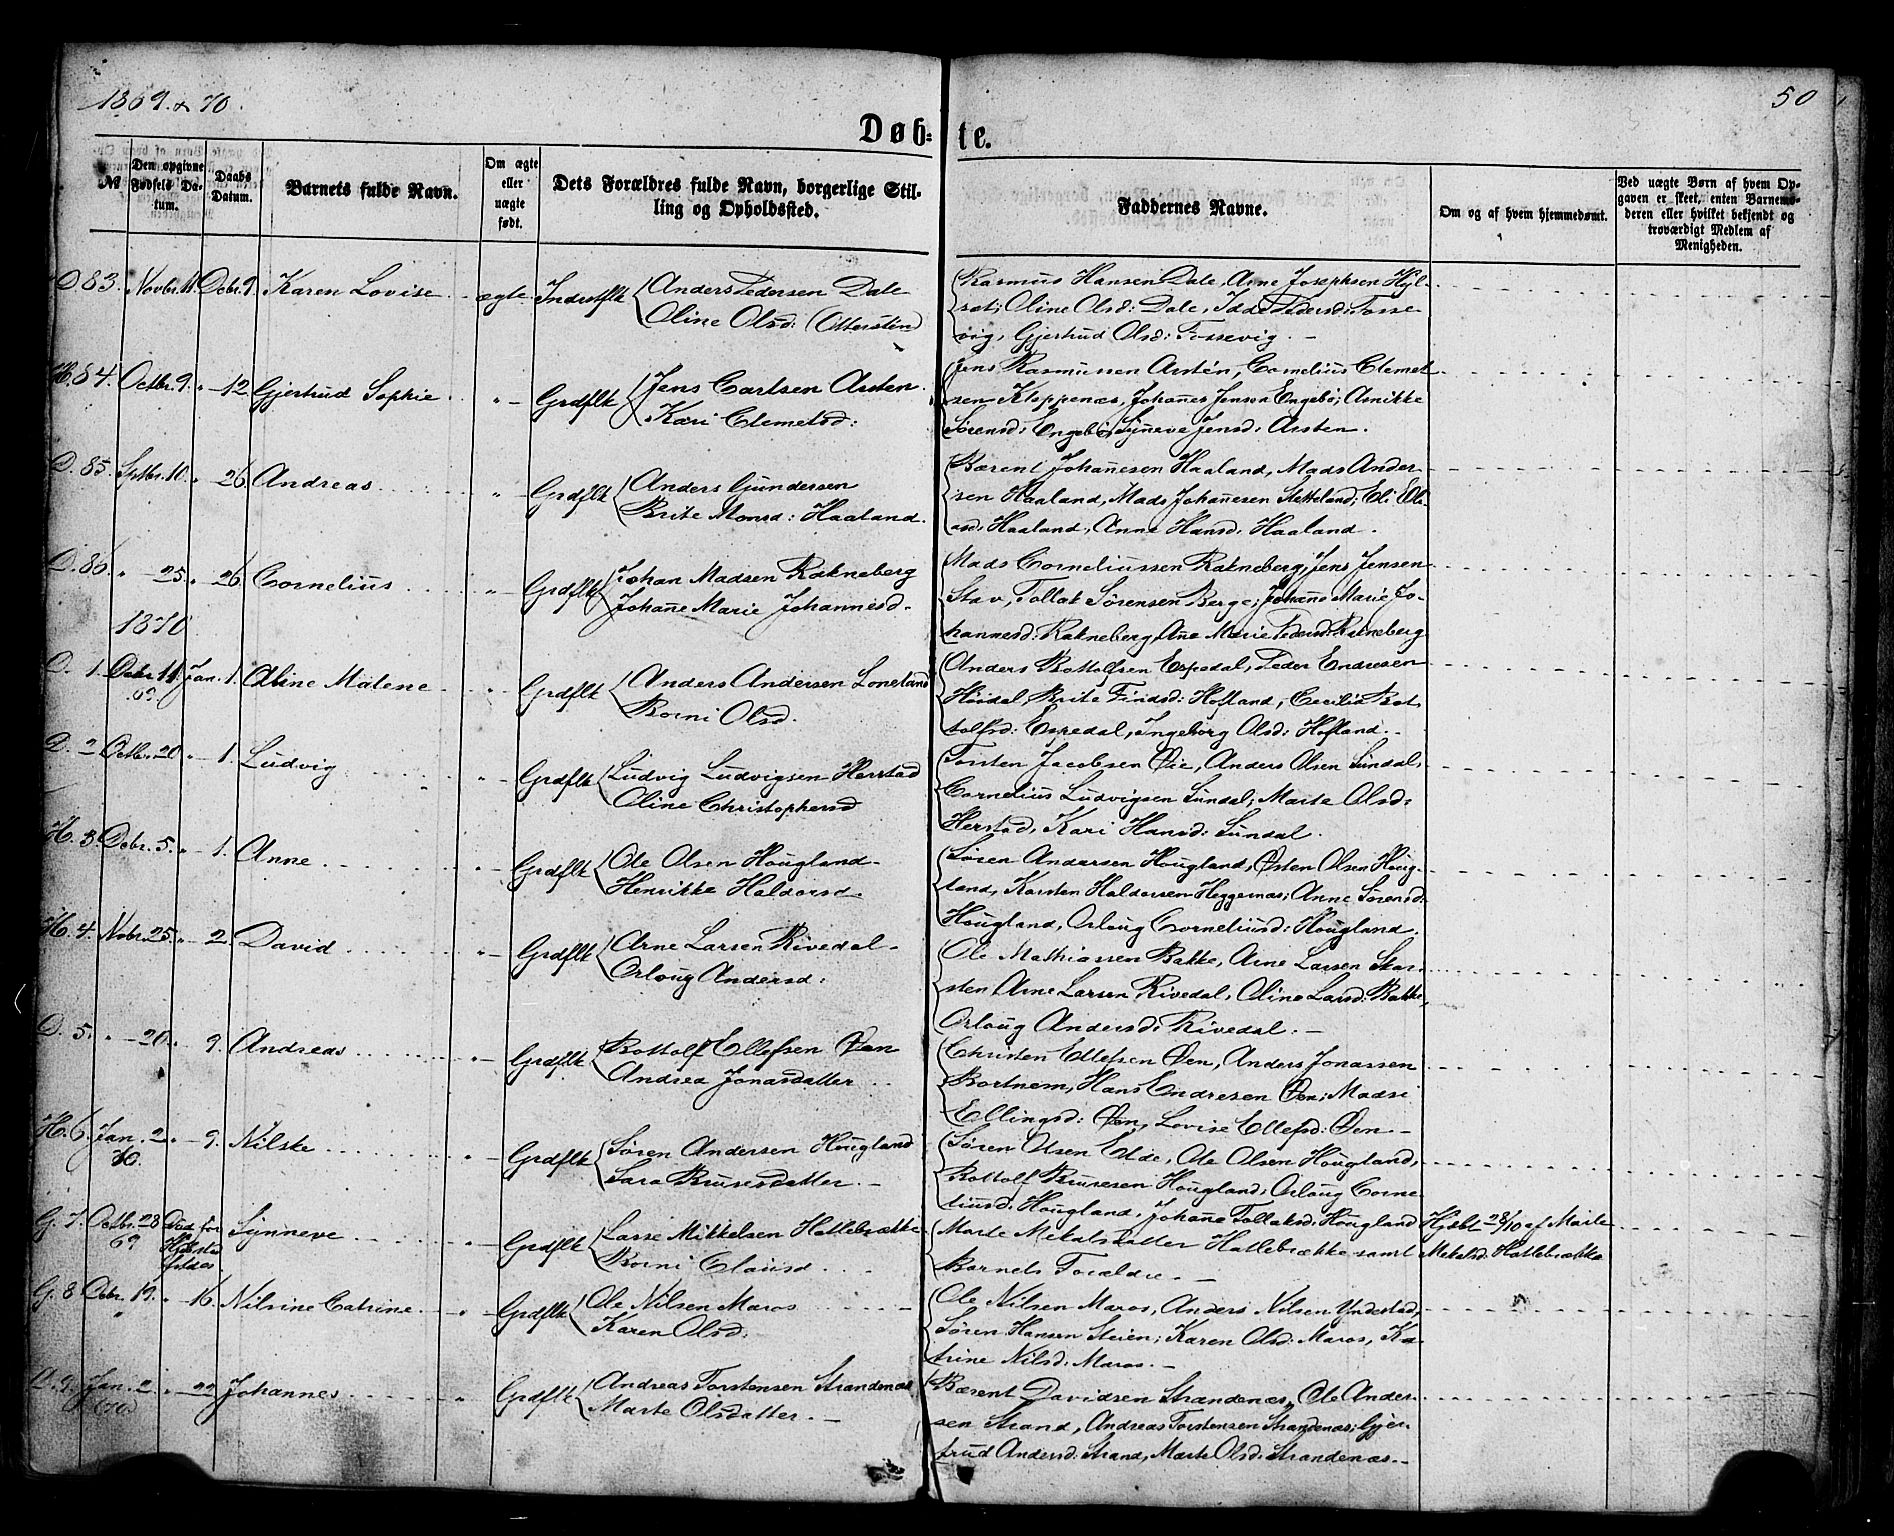 1869 & 70.
50
Døbte.
№
Den opgivne Fødsels Datum.
Daabs Datum.
Barnets fulde Navn.
Om ægte eller uægte født.
Dets Forældres fulde Navn, borgerlige Stilling og Opholdssted.
Faddernes Navne.
Om og af hvem hjemmedømt.
Ved uægte Børn af hvem Opgaven er skeet, enten Barnemoderen eller hvilket bekjendt og troværdigt Medlem af Menigheden.
D 83. Novbr. 11. Debr. 9. Karen Lovise ægte Indrstflk Anders Pedersen Dale
Oline Olsd: (Otterstin)
Rasmus Hansen Dale, Arne Josephsen Hyl-
sæt; Oline Olsd: Dale, Idde Pedersd: Fosse-
vig, Gjertrud Olsd: Fossevig. -
H. 84. Octbr. 9. " - 12 Gjertrud Sophie " - Grdflk Jens Carlsen Aasten
Kari Clemetsd:
Jens Rasmussen Aasten, Cornelius Clemet-
sen Kleppenæs, Johannes Jensen Engebø; Annikke
Sørensd: Engebø, Synneve Jensd: Aasten.
D. 85. Septbr. 10. " 26. Andreas " - Grdflk Anders Gundersen
Brite Monsd: Haaland.
Bærent Johanesen Haaland, Mads Ander-
sen Haaland, Mads Johanesen Sletteland; Eli Ole-
asd: Haaland, Anne Hansd: Haaland.
D. 86. " - 25. " 26 Cornelius " - Grdflk Johan Madsen Rakneberg
Johane Marie Johannesd.
Mads Corneliussen Rakneberg, Jens Jensen
Stav, Tollak Sørensen Berge; Johane Marie Jo-
hannesd: Rakneberg, Ane Marie Pedersd: Rakneberg
1870
D. 1. Debr. 11. 69. Jan. 1. Oline Malene " Grdflk Anders Andersen Loneland
Borni Olsd.
Anders Bottolfsen Espedal, Peder Endresen
Høidal, Brite Findsd: Hofland, Cecilia Bot-
tolfsd: Espedal, Ingeborg Olsd: Hofland. -
D. 2 Octbr. 20 " 1. Ludvig " - Grdflk Ludvig Ludvigsen Herstad
Oline Christophersd
Torsten Jacobsen Øie, Anders Olsen Sundal,
Cornelius Ludvigsen Sundal; Marte Olsd:
Herstad, Kari Hansd: Sundal.
H. 3 Debr. 5. " 1. Anne " - Grdflk Ole Olsen Hougland -
Henrikke Haldorsd -
Søren Andersen Hougland, Østen Olsen Houg-
land, Karsten Haldorsen Heggenæs; Anne Sørensd:
Hougland, Orloug Corneliusd: Hougland.
H. 4. Nobr. 25. " 2. David " - Grdflk Arne Larsen Rivedal -
Orloug Andersd:
Ole Mathiassen Bakke, Arne Larsen Skar-
sten Arne Larsen Rivedal, Oline Larsd: Bakke,
Orloug Andersd: Rivedal. -
D. 5. " - 20. " 9. Andreas " - Grdflk Bottolf Ellefsen Øen
Andrea Jonasdatter
Christen Ellefsen Øen, Anders Jonassen
Bortnem, Hans Endresen Øen; Madsi
Ellingsd: Øen, Lovise Ellefsd: Øen -
H. 6. Jan. 2. 70. " - 9. Nilske " - Grdflk Søren Andersen Hougland
Sara Brunesdatter. -
Søren Olsen Elde, Ole Olsen Hougland,
Bottolf Brunesen Hougland; Orloug Corne-
liusd: Hougland, Johane Tollaksd: Hougland
G. 7. Octbr. 28 69 Død før Synneve " - Grdflk Lasse Mikkelsen Hatlebrække
Borni Clausd
Marte Mekalsdatter Hatlebrække samt
Barnets Forældre. -
Hjdbt 28/10 af Marte
Mekalsd. Hatlebrække
G. 8 Debr. 19. " " - 16. Nilsine Catrine " - Grdflk Ole Nilsen Maros
Karen Olsd:
Ole Nilsen Maros, Anders Nilsen Yndestad,
Søren Hansen Steien; Karen Olsd: Maros, Ka-
trine Nilsd: Maros. -
D. 9. Jan. 2. (70.) " - 22 Johannes " Grdflk Andreas Torstensen Strandenæs
Marte Olsdatter. -
Bærent Davidsen Strandenæs, Ole Ander-
sen Strand, Andreas Torstensen Strandenæs; Gjer-
trud Andersd: Strand, Marte Olsd: Strandenæs. -